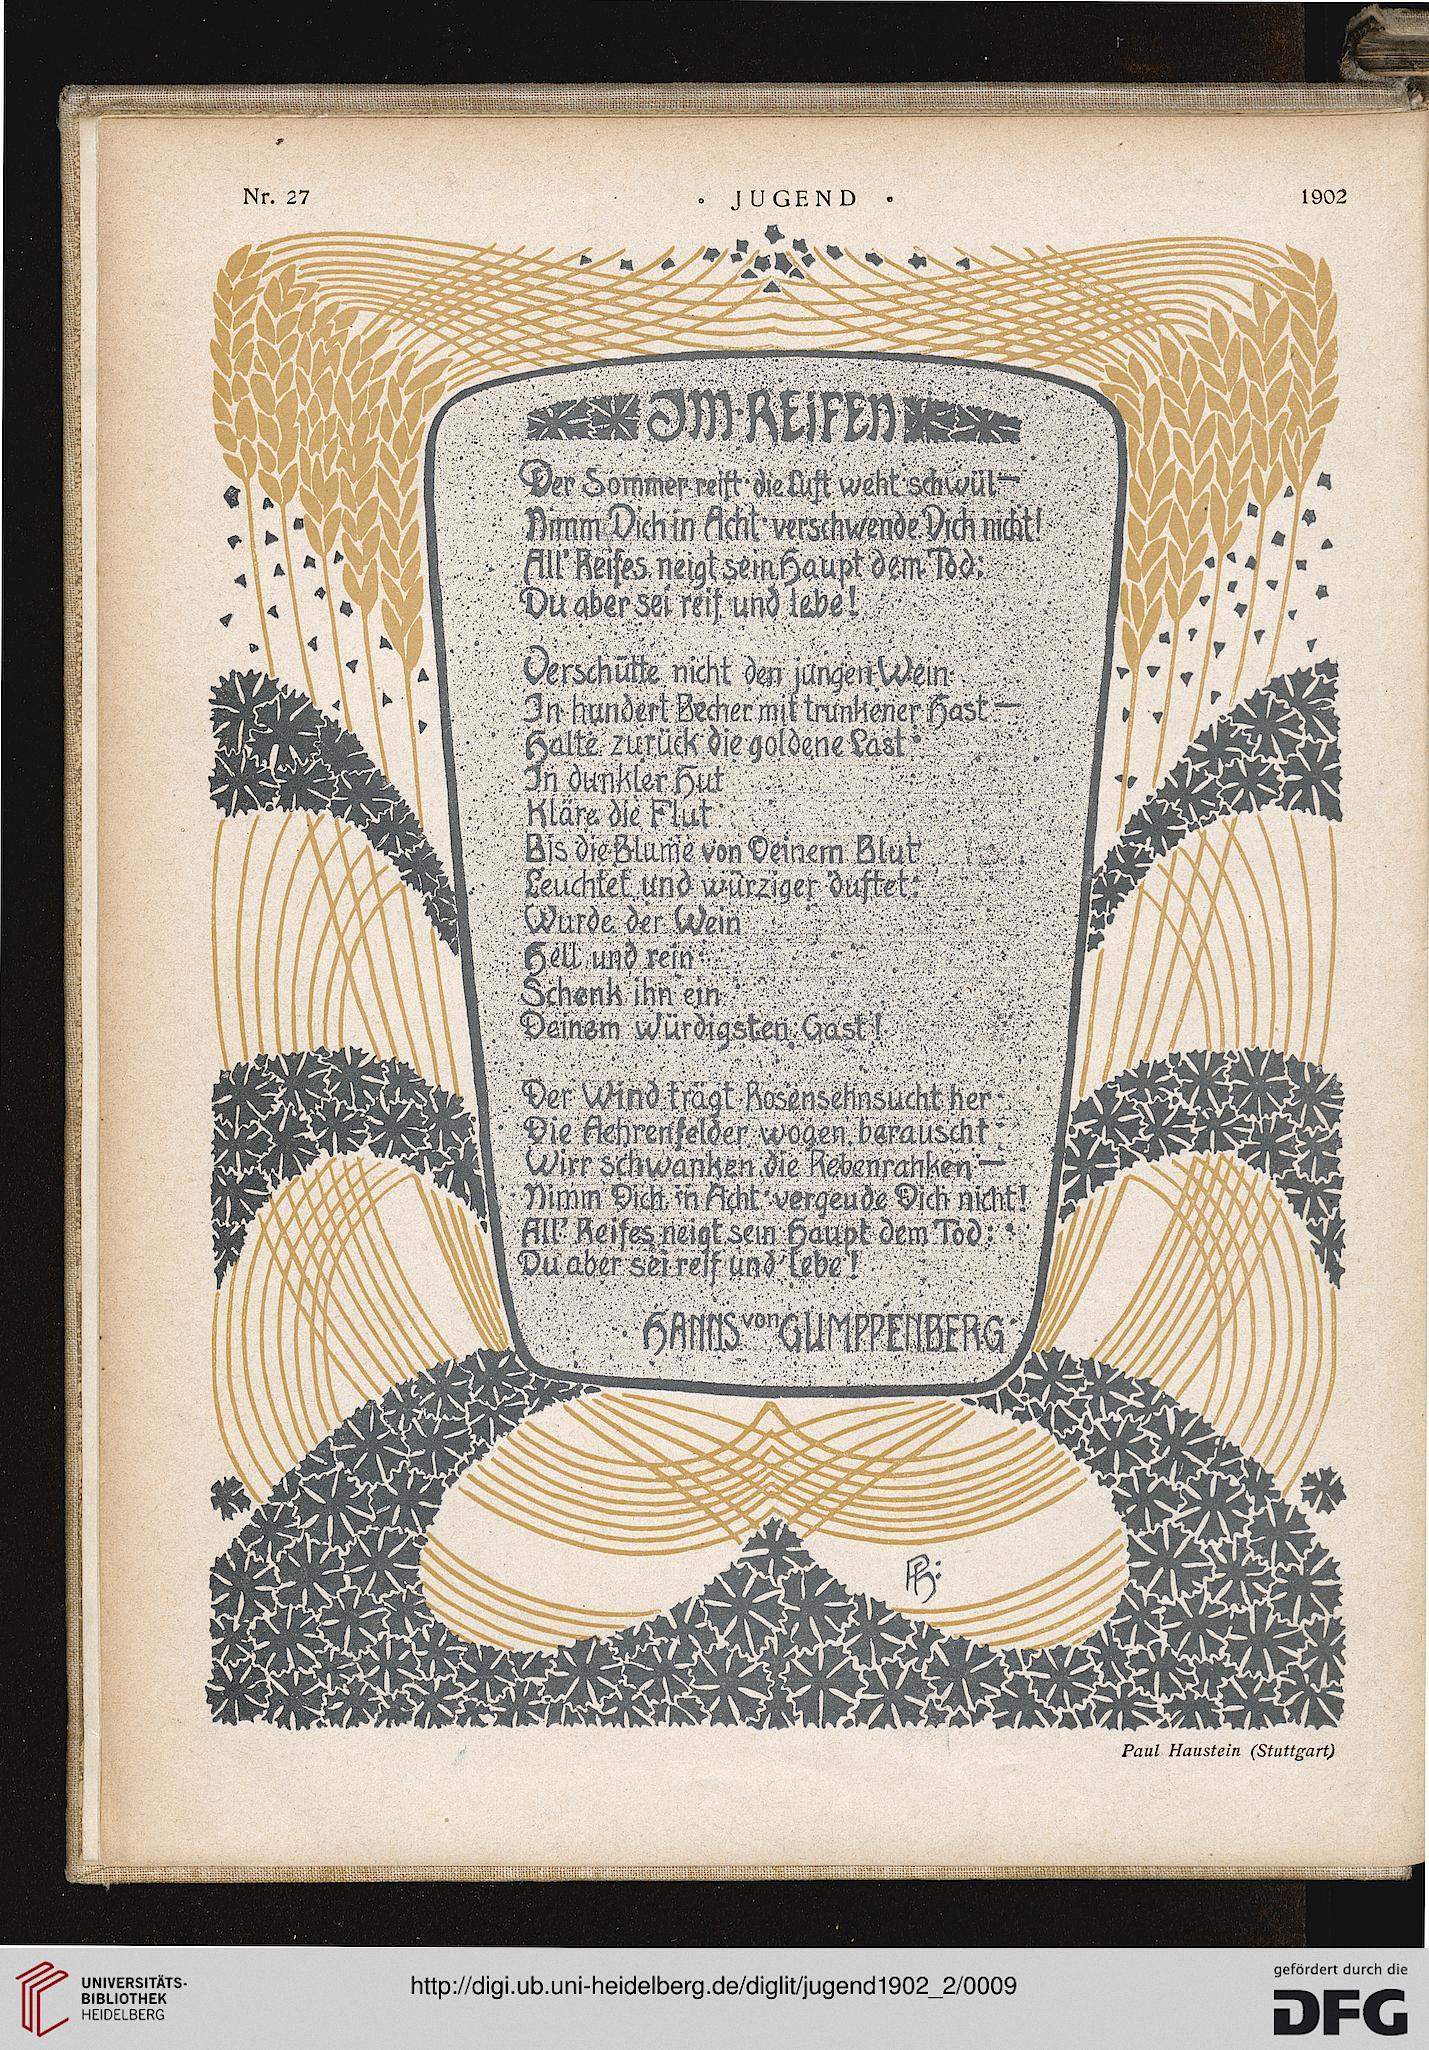 Nr. 27
• JUGEND •
1902
IM·REIFEN
Der Sommer reift · die Luft weht schwül —
Nimm Dich in Acht · verschwende Dich nicht!
All' Reifes neigt sein Haupt dem Tod:
Du aber sei reif und lebe!
Verschütte nicht den jungen Wein
In hundert Becher mit trunkener Hast —
Halte zurück die goldene Last ·
In dunkler Hut
Kläre die Flut
Bis die Blume von Deinem Blut
Leuchtet und würziger duftet:
Wurde der Wein
Hell und rein:
Schenk ihn ein
Deinem würdigsten Gast!
Der Wind trägt Rosensehnsucht her ·
Die Aehrenfelder wogen berauscht ·
Wirr schwanken die Rebenranken —
Nimm Dich in Acht · vergeude Dich nicht!
All' Reifes neigt sein Haupt dem Tod:
Du aber sei reif und lebe!
HANNS von GUMPPENBERG
PH:
Paul Haustein (Stuttgart)
UNIVERSITÄTS-
BIBLIOTHEK
HEIDELBERG
http://digi.ub.uni-heidelberg.de/diglit/jugend1902_2/0009
gefördert durch die
DFG